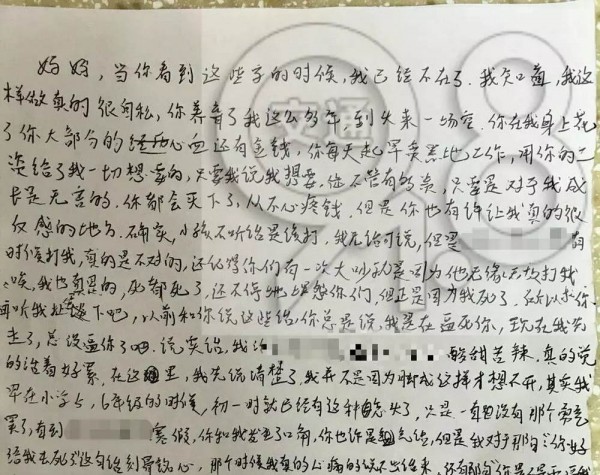 妈妈，当你看到这些字的时候，我已经不在了。我知道，我这
样做真的很自私，你养育了我这么多年，到头来一场空。你在我身上花
了你大部分的心血还有金钱，你每天起早贪黑地工作，用你的工
资给了我一切想要的，只要我说我想要，你不管有多贵，只要是对于我成
长是无害的，你都会买下了，从不心疼钱。但是你也有许让我真的很
反感的地方。确实，小孩不听话是该打，我无话可说，但是 有
时候打我，真的是不对的，还记得你们有一次大吵就是因为他无缘无故打我
唉，我也真是的，死都死了，还不停地埋怨你们，但正是因为我死了，所以求你
再听我 下吧，以前和你说这些话，你总是说，我是在逼死你，现在我先
走了，总没逼你了吧。说实话，我活 酸甜苦辣，真的说
的活着好累。在这里，我先说清楚了，我并不是因为脚成这样才想不开，其实我
早在小学5，6年级的时候，初一时就已经有这种 头了，只是一直没有那个勇气
罢了，直到 寒假，你和我发生了口角，你也许是 气话，但是我对那 你好
话 我去死 这句话到 心，那个时候我真的心痛的说不出话来，